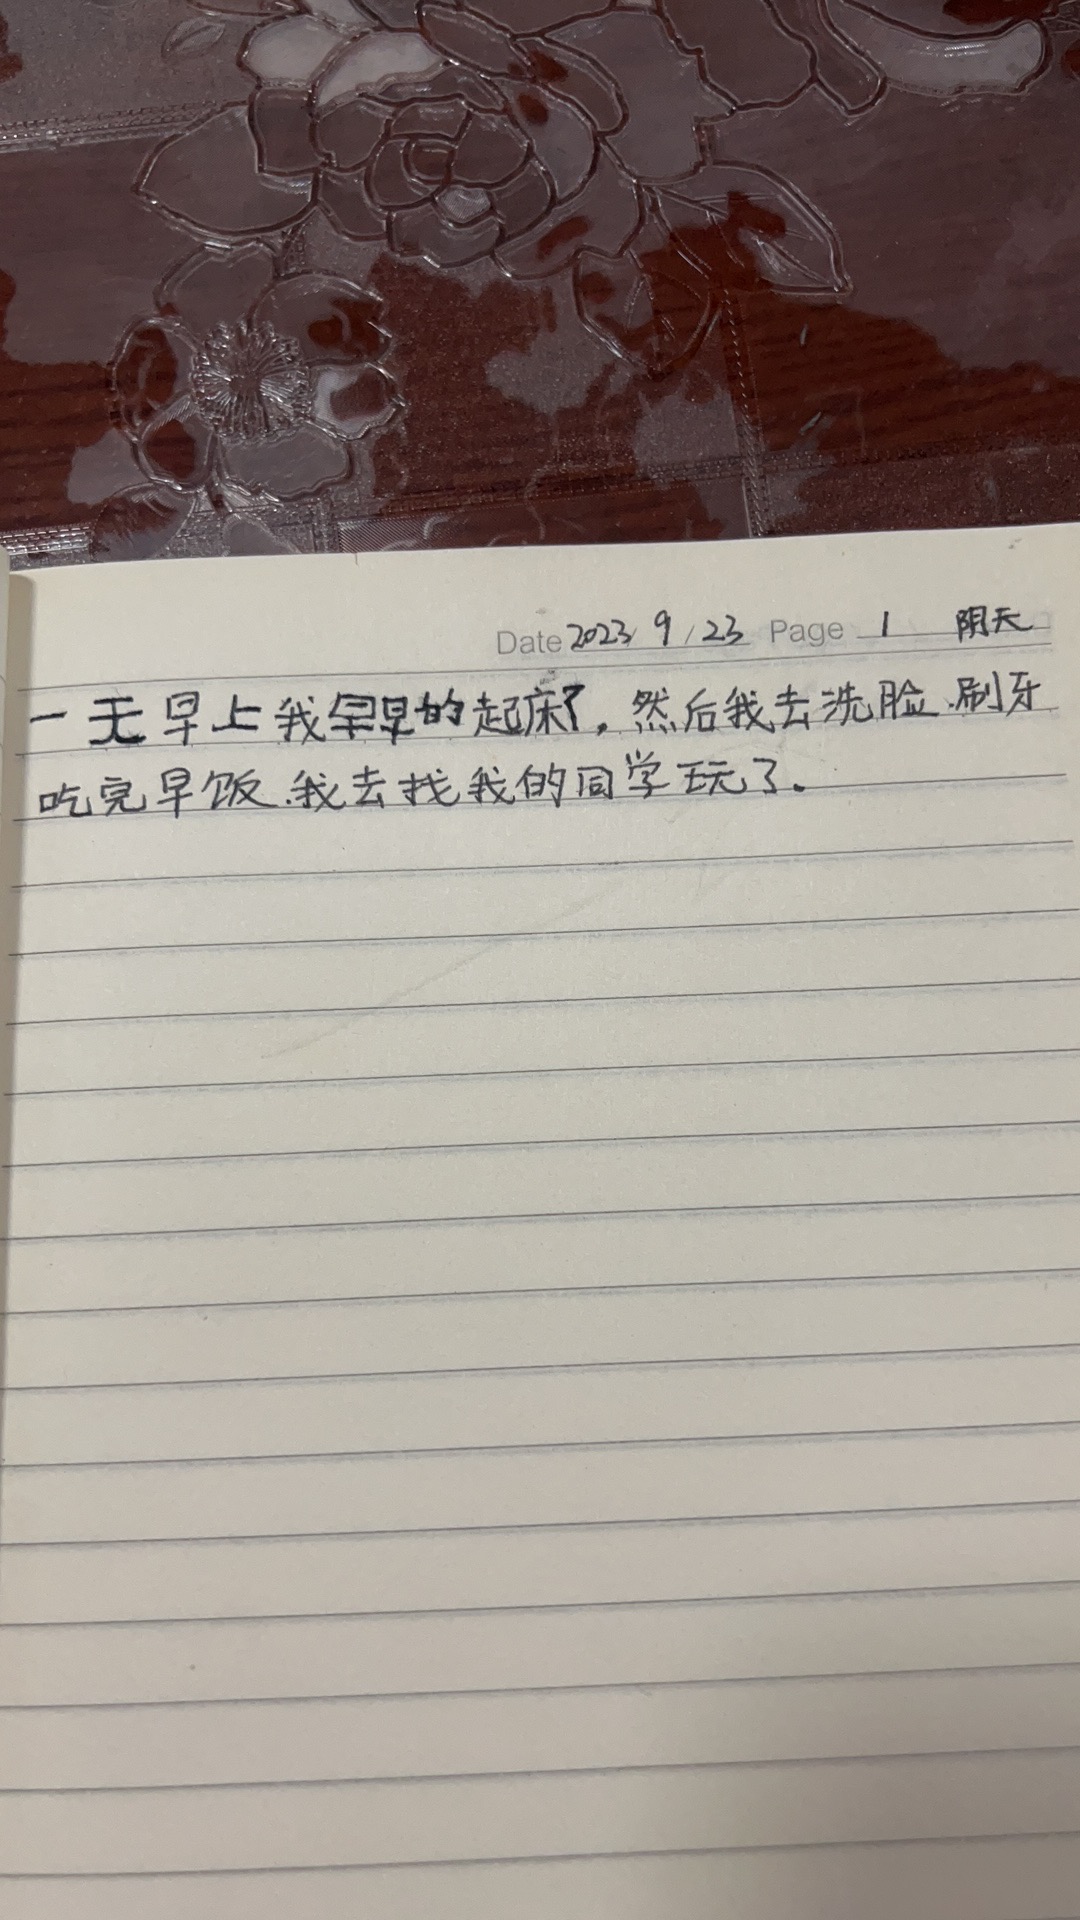 Date 2023 9/23 Page 1 阴天
一天早上我早早的起床了，然后我去洗脸、刷牙
吃完早饭、我去找我的同学玩了。